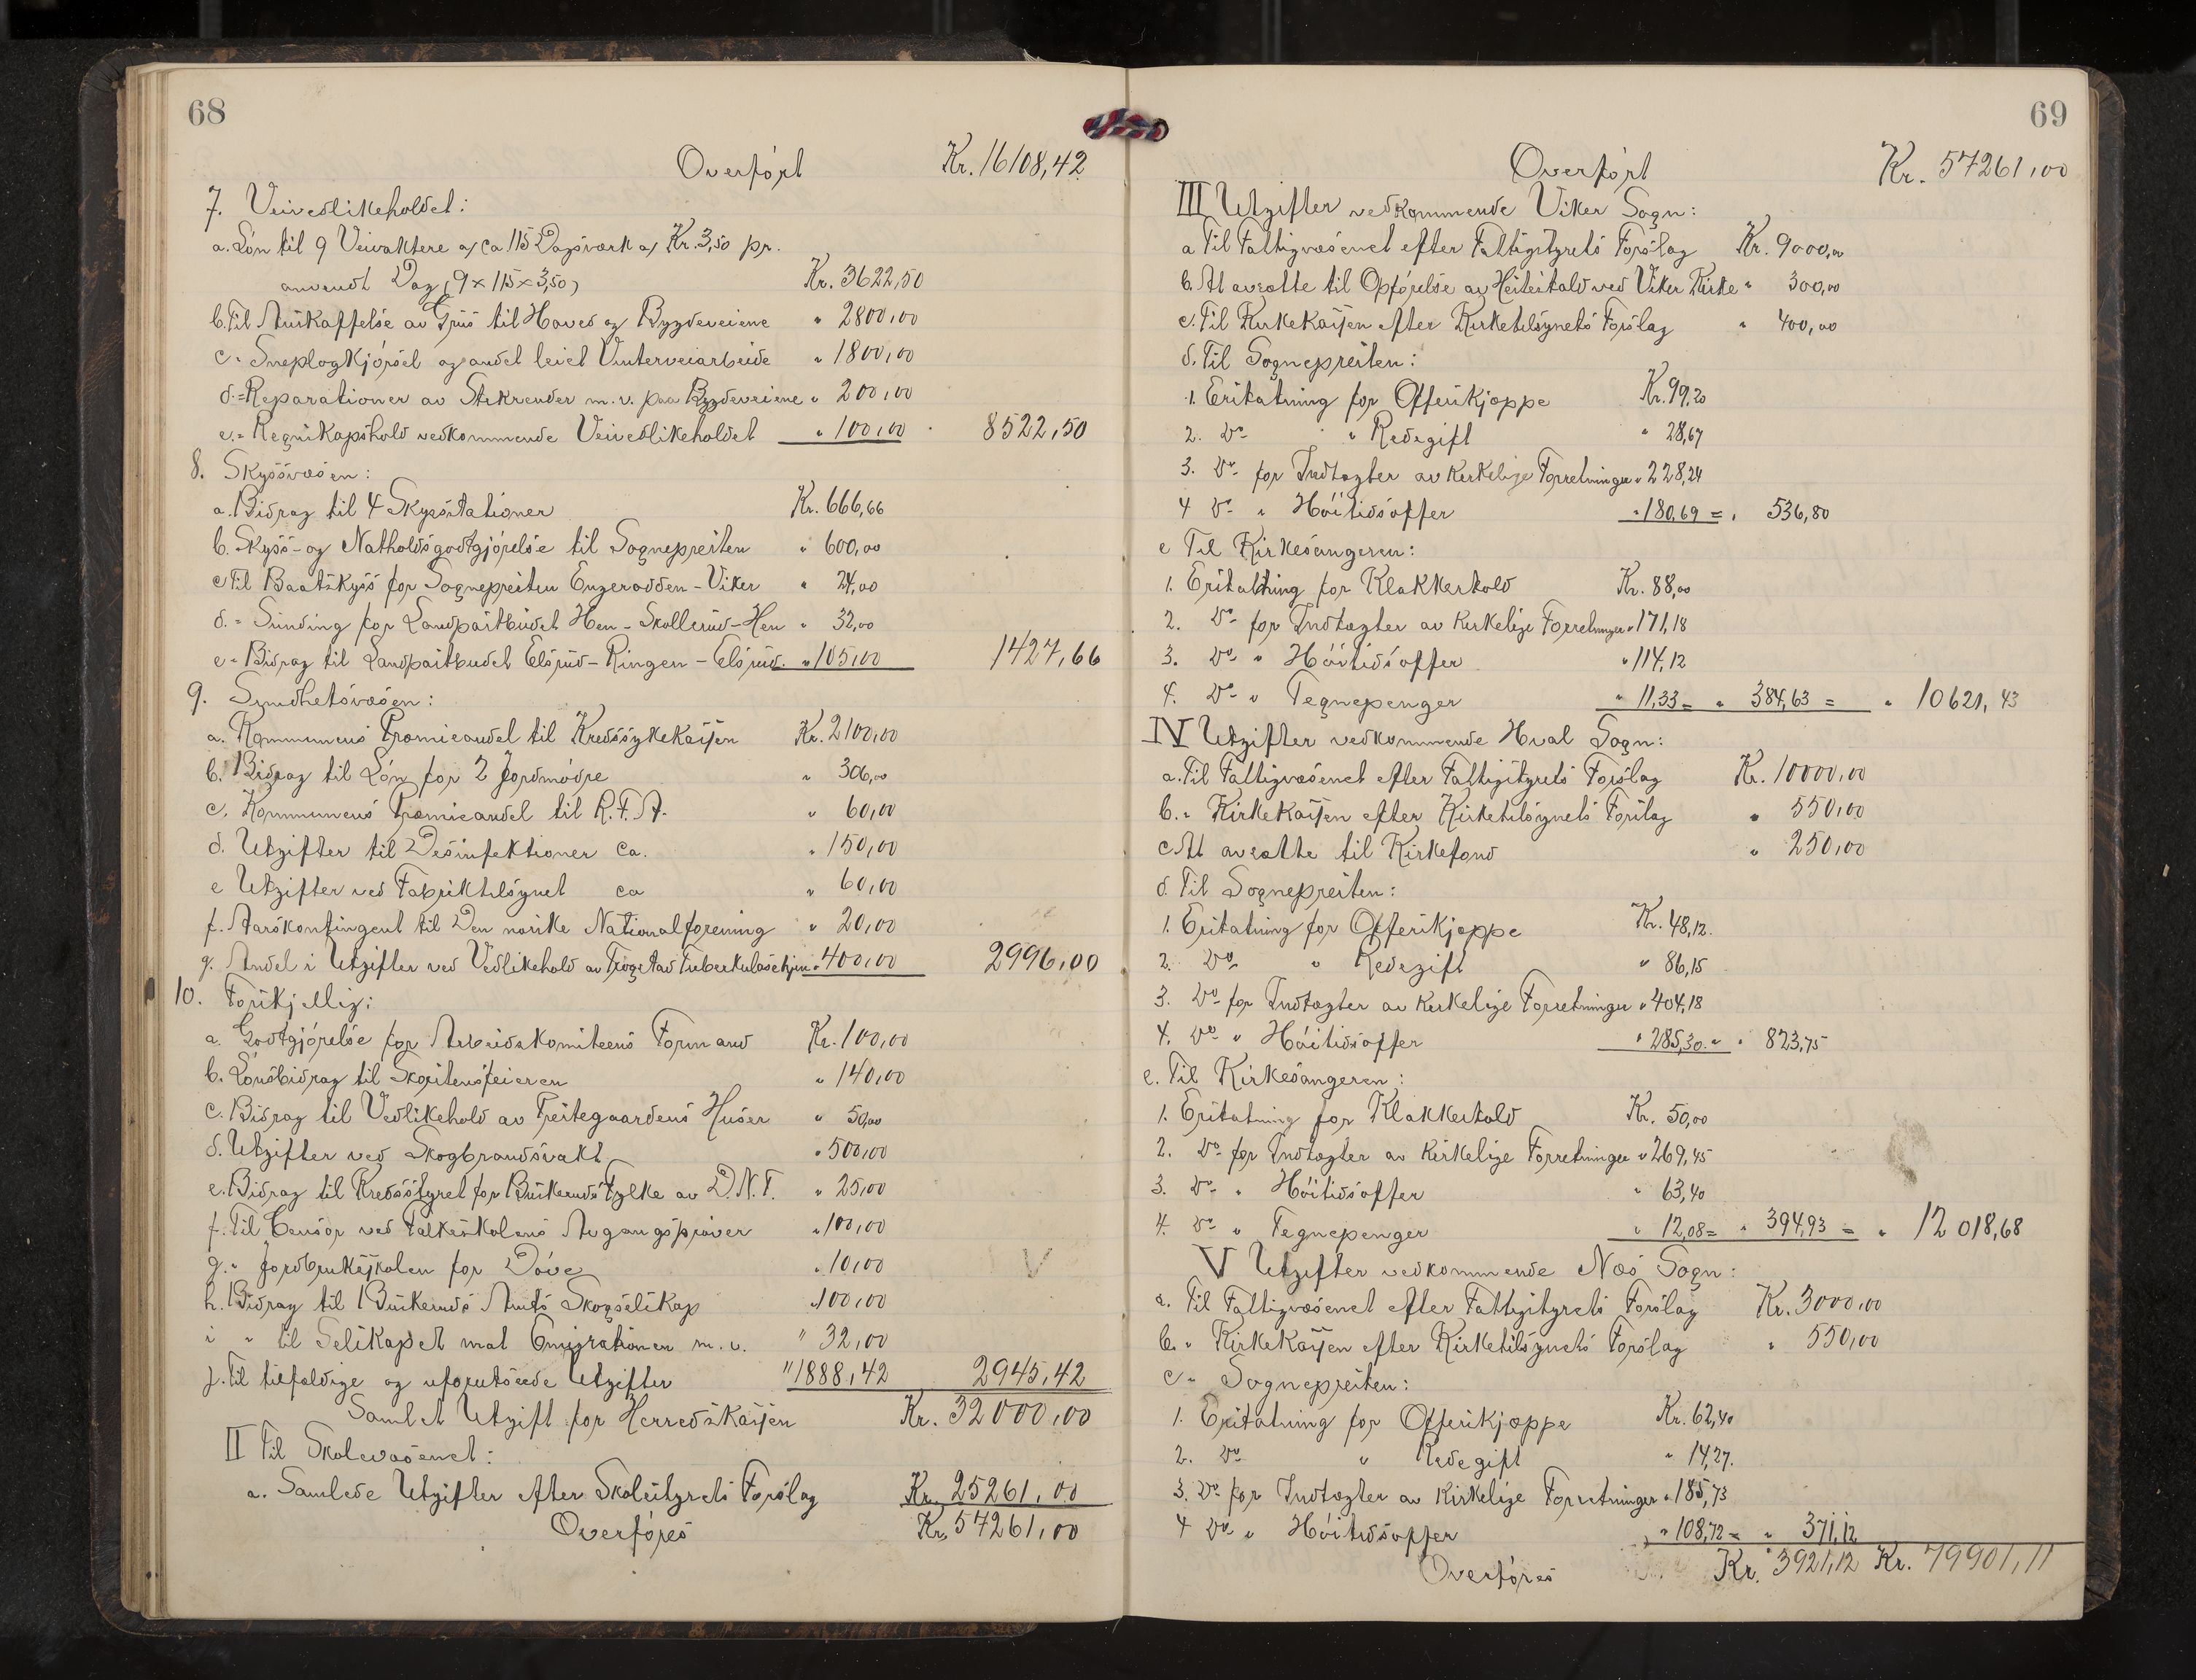 68
Overført Kr. 16108,42
7. Veivedlikeholdet:
a. Løn til 9 Veivaktere a/ ca 115 Dagsværk a/ Kr. 3,50 pr.
anvendt Dag (9 x 115 x 3,50) Kr. 3622,50
b. Til Anskaffelse av Grus til Hoved og Bygdeveiene " 2800,00
c. " Sneplogkjørsel og andet leiet Vinterveiarbeide " 1800,00
d. " Reparationer av Stikrender m. v. paa Bygdeveiene " 200,00
e. " Regnskapshold vedkommende Veivedlikeholdet " 100,00 8522,50
8. Skyssvæsen:
a. Bidrag til 4 Skysstationer Kr. 666,66
b. Skyss- og Natholdsgodtgjørelse til Sognepresten " 600,00
c Til Baatskyss for Sognepresten Engerodden - Viker " 24,00
d. " Sunding for Landpostbudet Hen - Skollerud - Hen " 32,00
e " Bidrag til Landpostbudet Elsrud - Ringen - Elsrud. " 105,00 1427,66
9. Sundhetsvæsen:
a. Kommunens Præmieandel til Kredssykekassen Kr. 2100,00
b. Bidrag til Løn for 2 Jordmødre " 306,00
c. Kommunens Præmieandel til R.F.A. " 60,00
d. Utgifter til Desinfektioner ca. " 150,00
e Utgifter ved Fabriktilsynet ca " 60,00
f. Aarskontingent til Den norske Nationalforening " 20,00
g. Andel i Utgifter ved Vedlikehold av Trøgstad Tuberkulosehjem " 400,00 2996,00
10. Forskjellig:
a. Godtgjørelse for Arbeidskomiteens Formand Kr. 100,00
b. Lønsbidrag til Skorstensfeieren " 140,00
c. Bidrag til Vedlikehold av Prestegaardens Huser " 50,00
d. Utgifter ved Skogbrandsvakt " 500,00
e. Bidrag til Kredsstyret for Buskeruds Fylke av D.N.T. " 25,00
f. Til Censor ved Folkeskolens Avgangsprøver " 100,00
g. " Jordbruksskolen for Døve " 10,00 V
h. Bidrag til Buskeruds Amts Skogselskap " 100,00
i " til Selskapet mot Emigrationen m. v. " 32,00
j. Til tilfældige og uforutseede Utgifter " 1888,42 2945,42
Samlet Utgift for Herredskassen Kr. 32000,00
II Til Skolevæsenet:
a. Samlede Utgifter efter Skolestyrets Forslag Kr. 25261,00
Overføres Kr. 57261,00
69
Overført Kr. 57261,00
III Utgifter vedkommende Viker Sogn:
a Til Fattigvæsenet efter Fattigstyrets Forslag Kr. 9000,00
b. At avsætte til Opførelse av Hestestald ved Viker Kirke " 300,00
c. Til Kirkekassen efter Kirketilsynets Forslag " 400,00
d. Til Sognepresten:
1. Erstatning for Offerskjæppe Kr. 99,20
2. Do " Redegift " 28,67
3. Do for Indtægter av kirkelige Forretninger " 228,24
4 Do " Høitidsoffer " 180,69 = " 536,80
e Til Kirkesangeren:
1. Erstatning for Klokkertold Kr. 88,00
2. Do for Indtægter av kirkelige Forretninger " 171,18
3. Do " Høitidsoffer " 114,12
4. Do " Tegnepenger " 11,33 = " 384,63 = " 10621,43
IV Utgifter vedkommende Hval Sogn:
a. Til Fattigvæsenet efter Fattigstyrets Forslag Kr. 10000,00
b. " Kirkekassen efter Kirketilsynets Forslag " 550,00
c At avsætte til Kirkefond " 250,00
d. Til Sognepresten:
1. Erstatning for Offerskjæppe Kr. 48,12.
2. Do " Redegift " 86,15
3. Do for Indtægter av kirkelige Forretninger " 404,18
4. Do " Høitidsoffer " 285,30. " " 823,75
e. Til Kirkesangeren:
1. Erstatning for Klokkertold Kr. 50,00
2. Do for Indtægter av kirkelige Forretninger " 269,45
3. Do " Høitidsoffer " 63,40
4. Do " Tegnepenger " 12,08 = " 394,93 = " 12018,68
V Utgifter vedkommende Næs Sogn:
a. Til Fattigvæsenet efter Fattigstyrets Forslag Kr. 3000,00
b. " Kirkekassen efter Kirketilsynets Forslag " 550,00
c " Sognepresten:
1. Erstatning for Offerskjæppe Kr. 62,40
2. Do " Redegift " 14,27.
3. Do for Indtægter av kirkelige Forretninger " 185,73
4 Do " Høitidsoffer " 108,72 = " 371,12
Overføres Kr. 3921,12 Kr. 79901,11